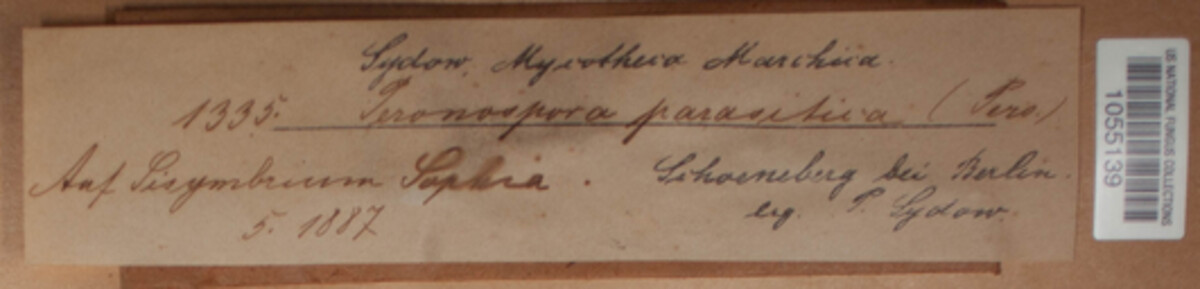 Sydow, Mycotheca Marchica.
1335. Peronospora parasitica (Pers.)
Auf Sisymbrium Sophia. Schoeneberg bei Berlin.
5. 1887 leg. P. Sydow.
US NATIONAL FUNGUS COLLECTIONS
1055139